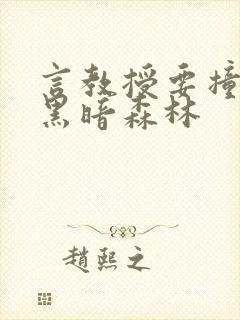 言教授要撞
黑暗森林
趙熙之